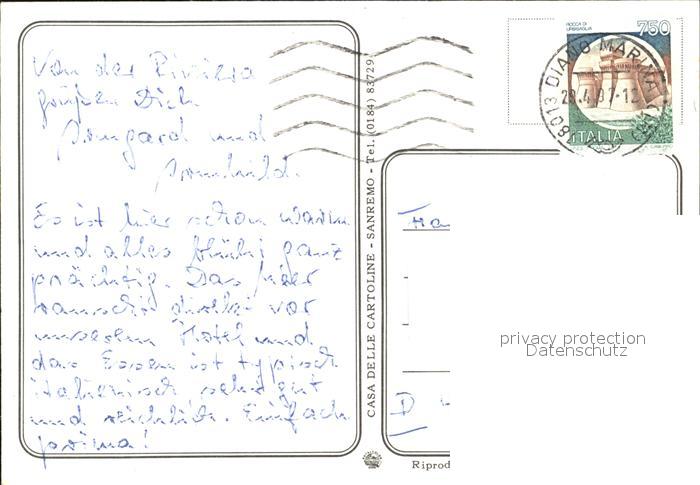 Von der Riviera
grüßen Dich
Irmgard und
Irmhild.
Es ist hier schon warm
und alles blüht ganz
prächtig. Das Meer
rauscht direkt vor
unserem Hotel und
das Essen ist typisch
italienisch sehr gut
und reichlich. Einfach
prima!
CASA DELLE CARTOLINE - SANREMO - Tel. (0184) 83729
ROCCA DI URBISAGLIA
750
ITALIA
DIANO MARINA
D
privacy protection
Datenschutz
Riprod